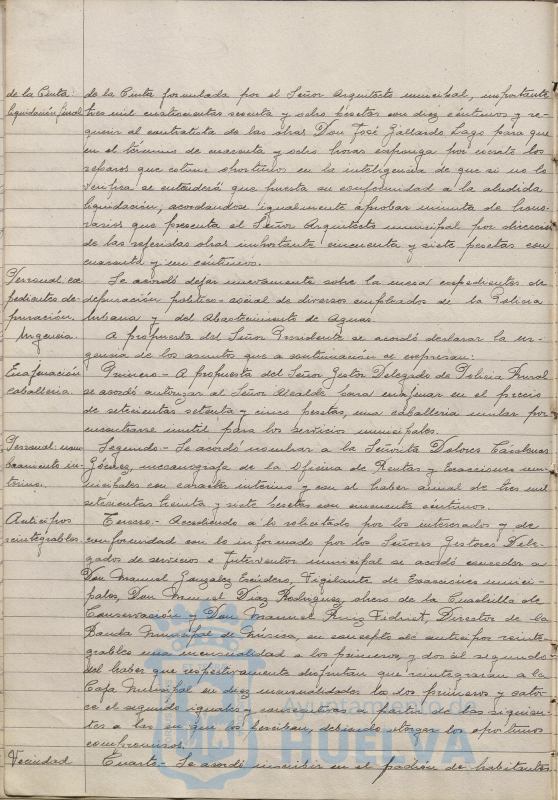 de la Cinta: de la Cinta formulada por el Señor Arquitecto municipal, importante
liquidación final. tres mil cuatrocientas sesenta y ocho pesetas con diez céntimos y re-
querir al contratista de las obras Don José Gallardo Lago para que
en el término de cuarenta y ocho horas exponga por escrito los
reparos que estime oportunos en la inteligencia de que si no lo
verifica se entenderá que presta su conformidad a la aludida
liquidación, acordándose igualmente aprobar minuta de hono-
rarios que presenta el Señor Arquitecto municipal por dirección
de las referidas obras importante cincuenta y siete pesetas con
cuarenta y un céntimos.
Personal: ex- Se acordó dejar nuevamente sobre la mesa expedientes de
pedientes de- depuración político-social de diversos empleados de la Policía
puración. Urbana y del Abastecimiento de Aguas.
Urgencia. A propuesta del Señor Presidente se acordó declarar la ur-
gencia de los asuntos que a continuación se expresan:
Enajenación Primero.- A propuesta del Señor Gestor Delegado de Policía Rural
caballería. se acordó autorizar al Señor Alcalde para enajenar en el precio
de setecientas setenta y cinco pesetas, una caballería mular por
encontrarse inutil para los servicios municipales.
Personal: nom- Segundo.- Se acordó nombrar a la Señorita Dolores
bramiento in- mecanógrafa de la Oficina de Rentas y Exacciones mu-
terino. nicipales con caracter interino y con el haber anual de tres mil
setecientas treinta y siete pesetas con cincuenta céntimos.
Anticipos Tercero.- Accediendo a lo solicitado por los interesados y de
reintegrables. conformidad con lo informado por los Señores Gestores Dele-
gados de servicios e Interventor municipal se acordó conceder a
Don Manuel González Escudero, Vigilante de Exacciones munici-
pales, Don Manuel Díaz Rodríguez, obrero de la Cuadrilla de
Conservación y Don Manuel Ruiz Director de la
Banda Municipal de Música, en concepto de anticipos reinte-
grables una mensualidad a los primeros, y dos al segundo
del haber que respectivamente disfrutan que reintegrarán a la
Caja Municipal en diez mensualidades los dos primeros y cator-
ce el segundo iguales y consecutivas a partir de las siguien-
tes a las en que los perciban, debiendo otorgar los oportunos
compromisos.
Vecindad Cuarto.- Se acordó inscribir en el padrón de habitantes
Ayuntamiento de
HUELVA